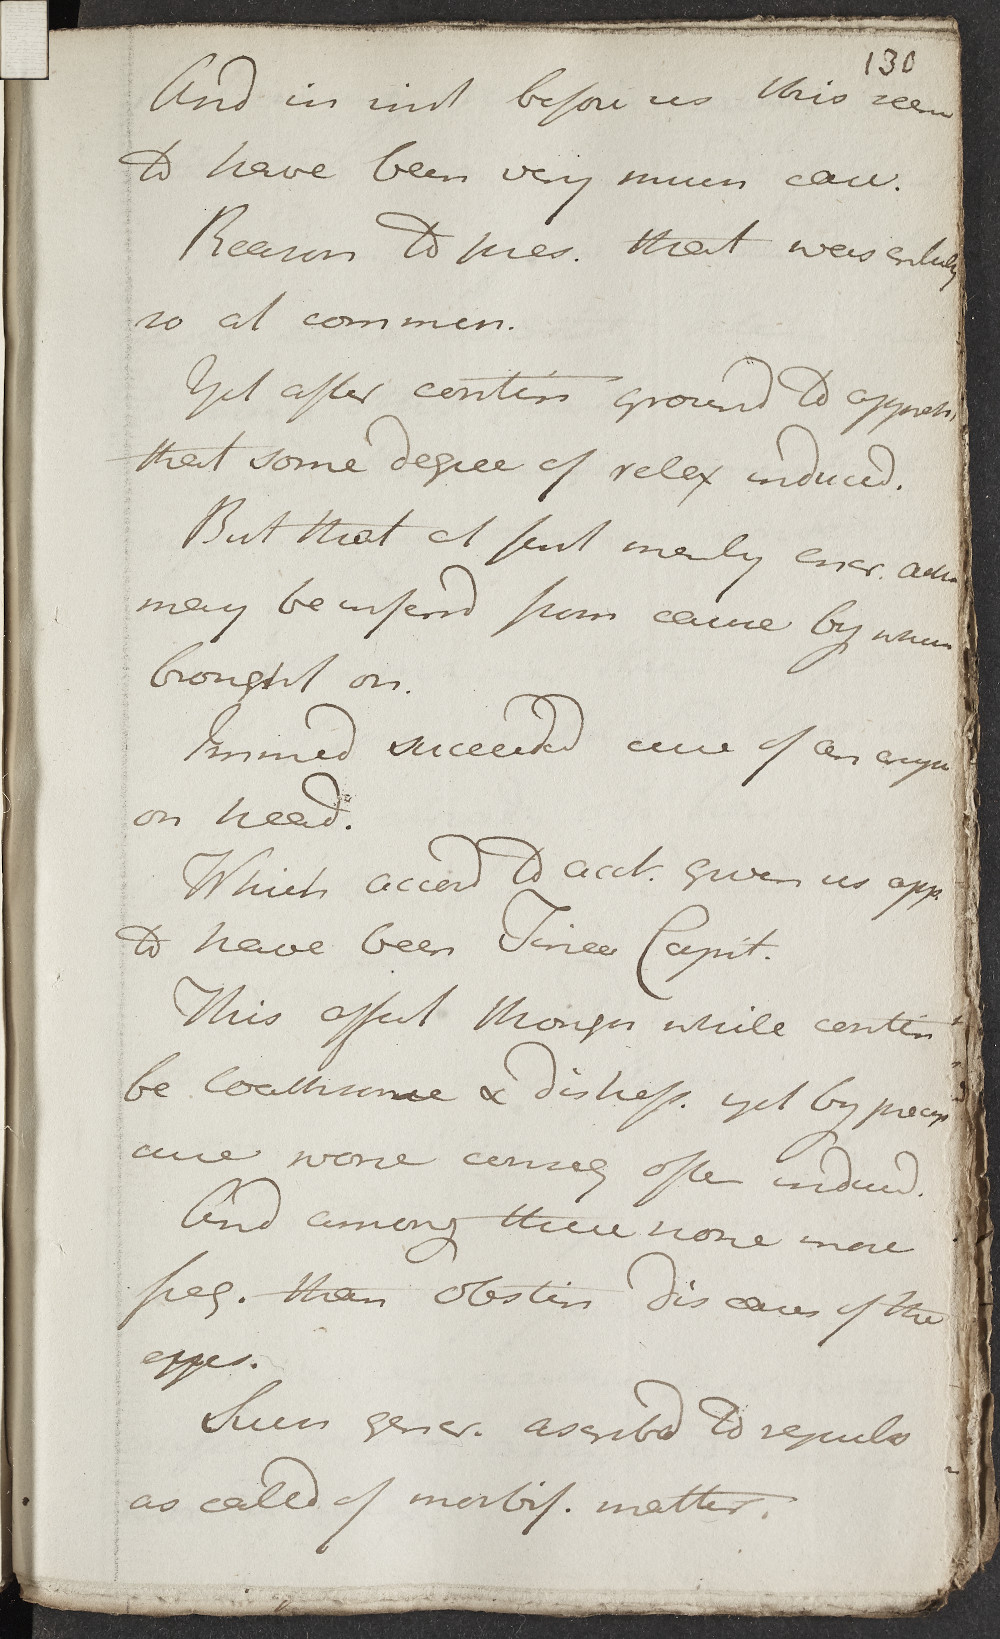 130
And in inst before us this seem
to have been very much case.
Reason to pres. that was entirely
so at commen.
Yet after contin ground to appreh
that some degree of relax induced.
But that at first merely incr. action
may be inferd from cause by when
brought on.
Immed succeeded cure of an erup
on head.
Which accord to acct. given us app.
to have been Tinea Capit.
This affect though while contin
be loathsome & distress. yet by precip
cure worse conseq often induced.
And among these none more
freq. than obstin diseases of the
eyes.
Such gener. ascribd to repuls
as called of morbif. matter.